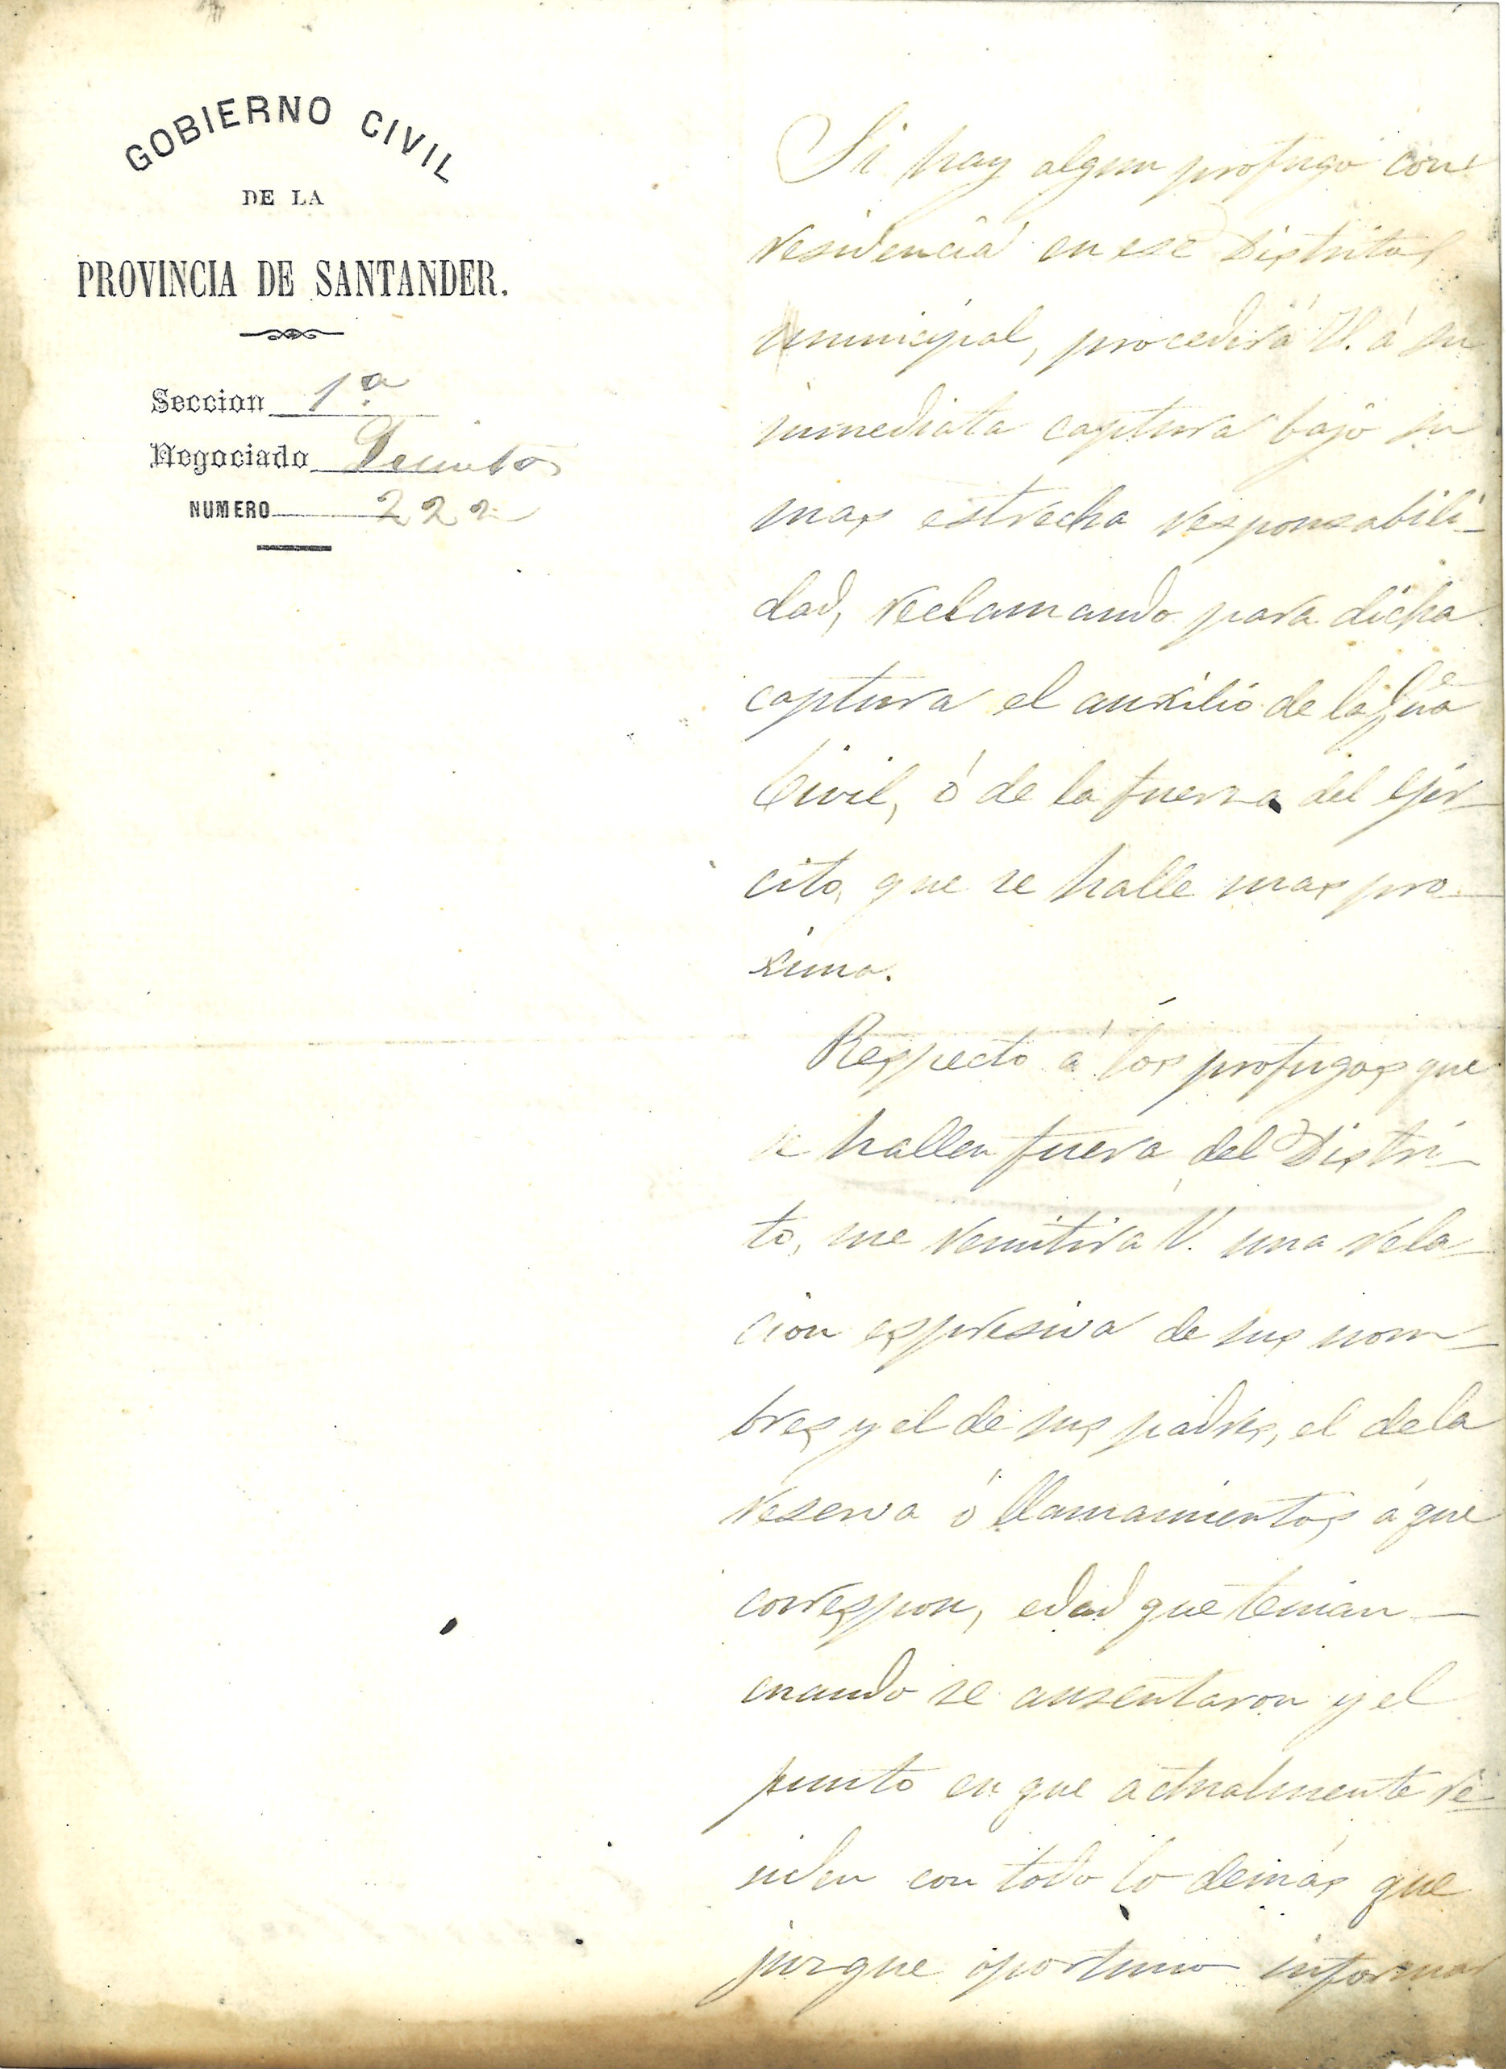 GOBIERNO CIVIL
DE LA
PROVINCIA DE SANTANDER.
Seccion 1.ª
Negociado Quintos
NUMERO 222
Si hay algun profugo con
residencia en ese Distrito
municipal, procederá V. á su
inmediata captura bajo su
mas estrecha responsabili-
dad, reclamando para dicha
captura el auxilio de la
Civil, ó de la fuerza del Ejér-
cito, que se halle mas pro-
xima.
Respecto á los profugos que
se hallen fuera del Distri-
to, me remitirá V. una rela-
cion espresiva de sus nom-
bres y el de sus padres, el de la
reserva ó llamamientos á que
correspon, edad que tenian
cuando se ausentaron y el
punto en que actualmente re-
siden con todo lo demás que
juzgue oportuno informar